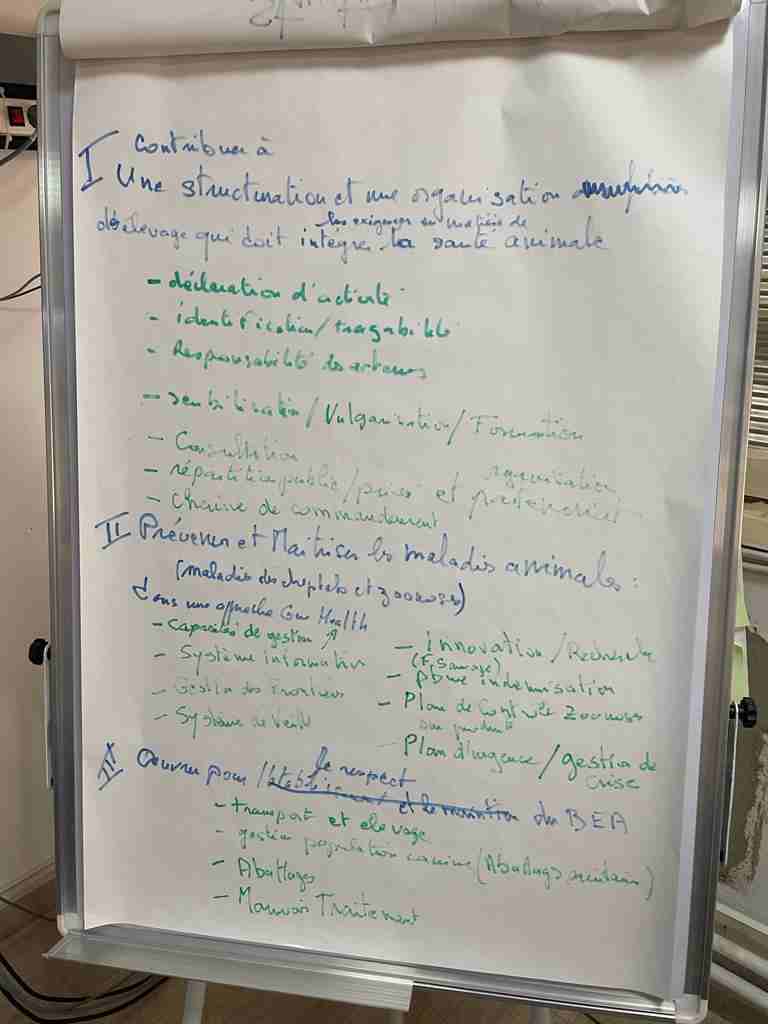 Contribuer à
I Une structuration et une organisation
d'elevage qui doit intégrer les exigences en matière de la santé animale
- déclaration d'activité
- identification/traçabilité
- Responsabilité des acteurs
- sensibilisation/Vulgarisation/Formation
- Consultation
- répartition public/privé et organisation partenariat
- chaine de commandement
II Prévenir et Maitriser les maladies animales :
(maladies des cheptels et zoonoses)
dans une approche One Health
- Capacités de gestion
- Système information
- Gestion des Frontières
- Système de Veille
- innovation/Recherche
(F. Sauvage)
- pbme indemnisation
- Plan de Contrôle Zoonoses
sur produit
- Plan d'urgence/gestion de
crise
Œuvrer pour le respect du BEA
- transport et elevage
- gestion population canine (Abattage sanitaire)
- Abattages
- Mauvais Traitement